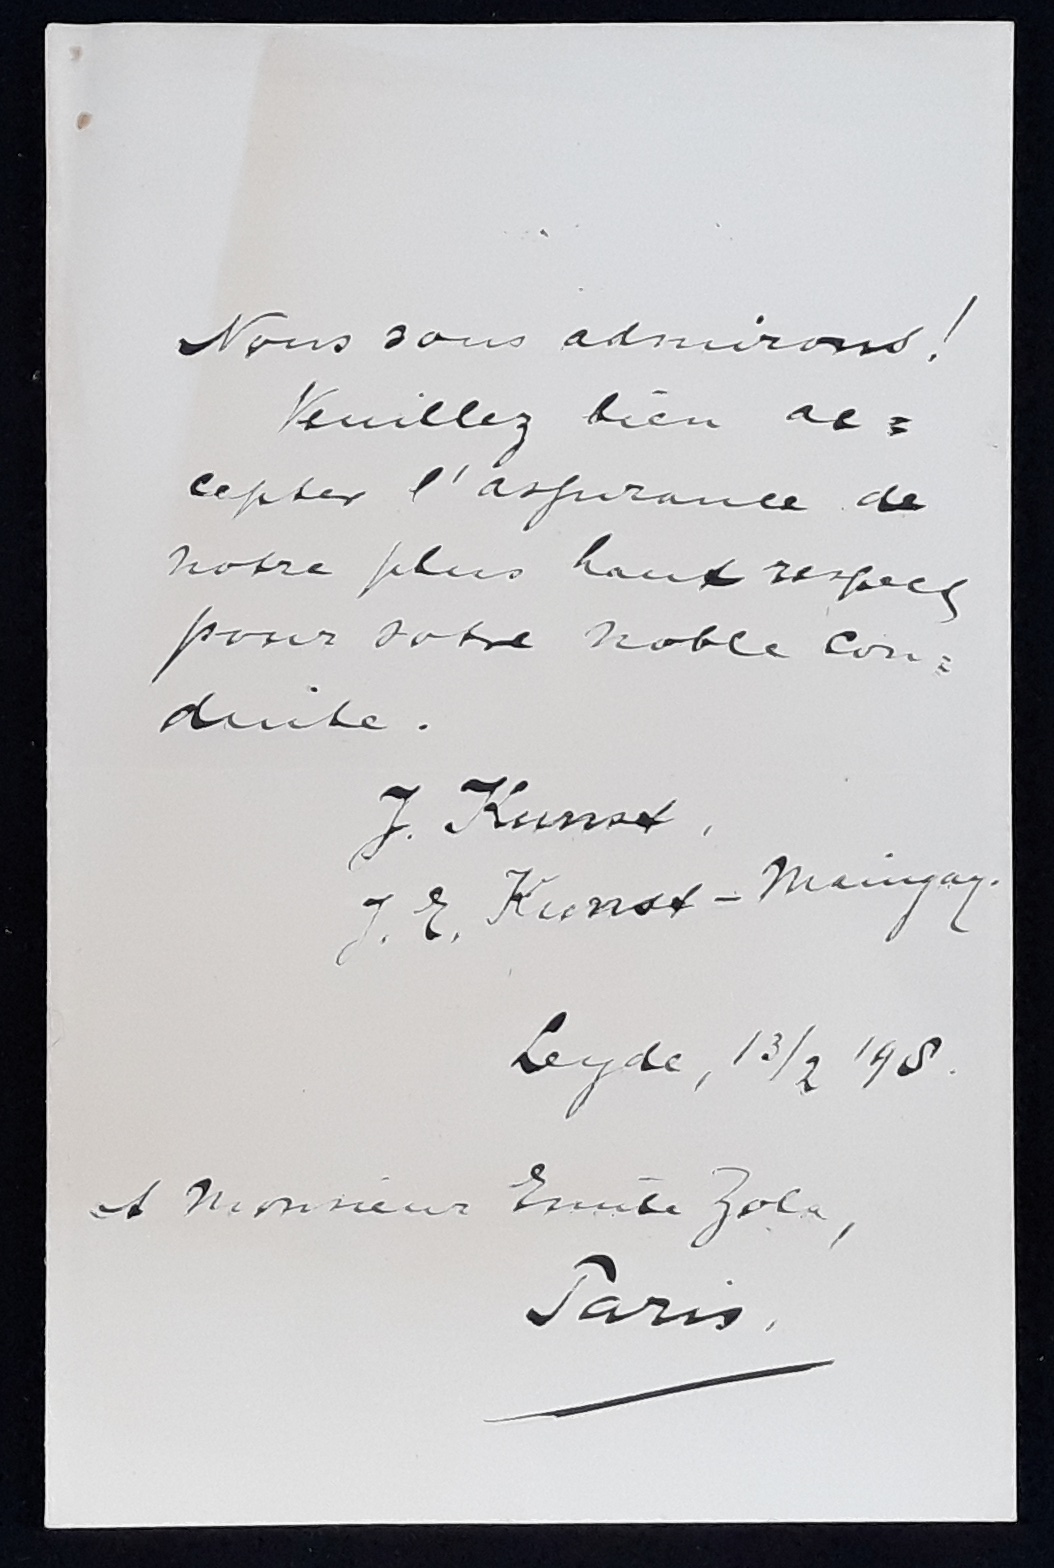 Nous vous admirons!
Veuillez bien ac=
cepter l'assurance de
notre plus haut respect
pour votre noble con=
duite.
J. Kunst,
J. E. Kunst-Maingay.
Leyde, 13/2 '98.
A Monsieur Emile Zola,
Paris.